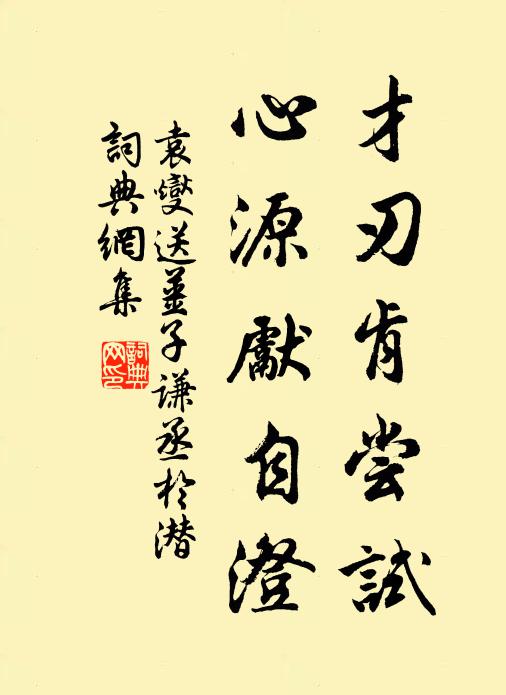 才刃肯尝試
心源獻自澄
袁燮送薑子谦丞於潜
詞典網集
詞典
网印